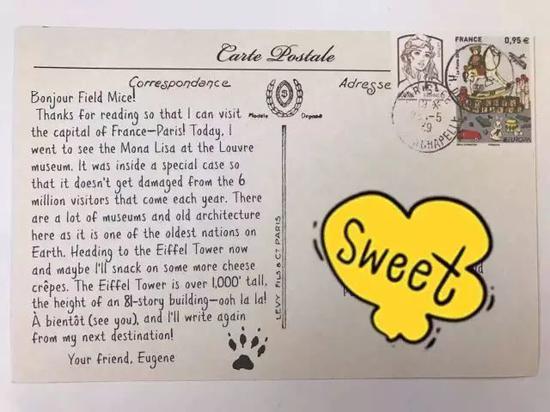 Carte Postale
Correspondance
Adresse
Bonjour Field Mice!
Thanks for reading so that I can visit
the capital of France—Paris! Today, I
went to see the Mona Lisa at the Louvre
museum. It was inside a special case so
that it doesn't get damaged from the 6
million visitors that come each year. There
are a lot of museums and old architecture
here as it is one of the oldest nations on
Earth. Heading to the Eiffel Tower now
and maybe I'll snack on some more cheese
crêpes. The Eiffel Tower is over 1,000' tall,
the height of an 81-story building—ooh la la!
À bientôt (see you), and I'll write again
from my next destination!
Your friend, Eugene
LEVY FILS & Cᵗ PARIS
FRANCE
0,95 €
EUROPA
Sweet